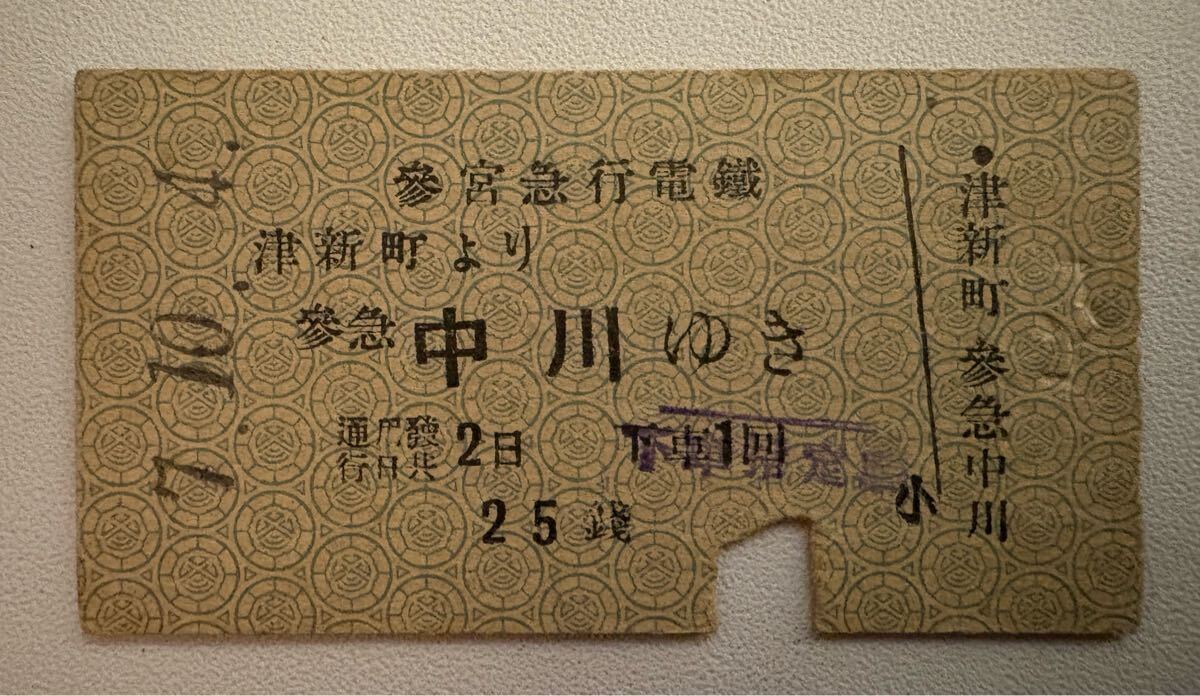 參宮急行電鐵
津新町より
參急 中川ゆき
通用發行日共2日 下車1回
25錢
小
津新町 參急中川
7.10.4.